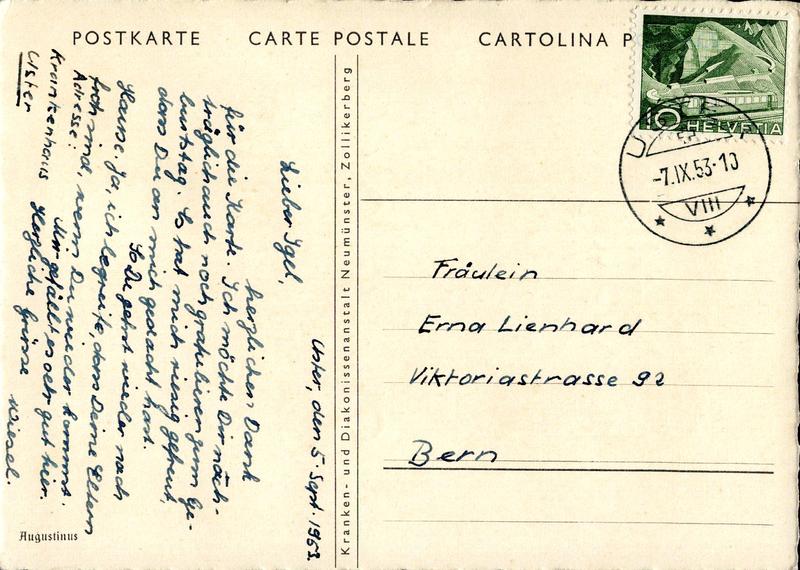 POSTKARTE CARTE POSTALE CARTOLINA P
10 HELVETIA
-7.IX.53-10
VIII
Kranken- und Diakonissenanstalt Neumünster, Zollikerberg
Uster, den 5. Sept. 1953.
Lieber Igel,
herzlichen Dank
für die Karte. Ich möchte Dir nach-
träglich auch noch gratulieren zum Ge-
burtstag. Es hat mich riesig gefreut,
dass Du an mich gedacht hast.
So Du gehst wieder nach
Hause. Ja, ich begreife, dass Deine Eltern
froh sind, wenn Du wieder kommst.
Mir gefällt es sehr gut hier.
Herzliche Grüsse
Wiesel.
Adresse:
Krankenhaus
Uster
Augustinus
Fräulein
Erna Lienhard
Viktoriastrasse 92
Bern